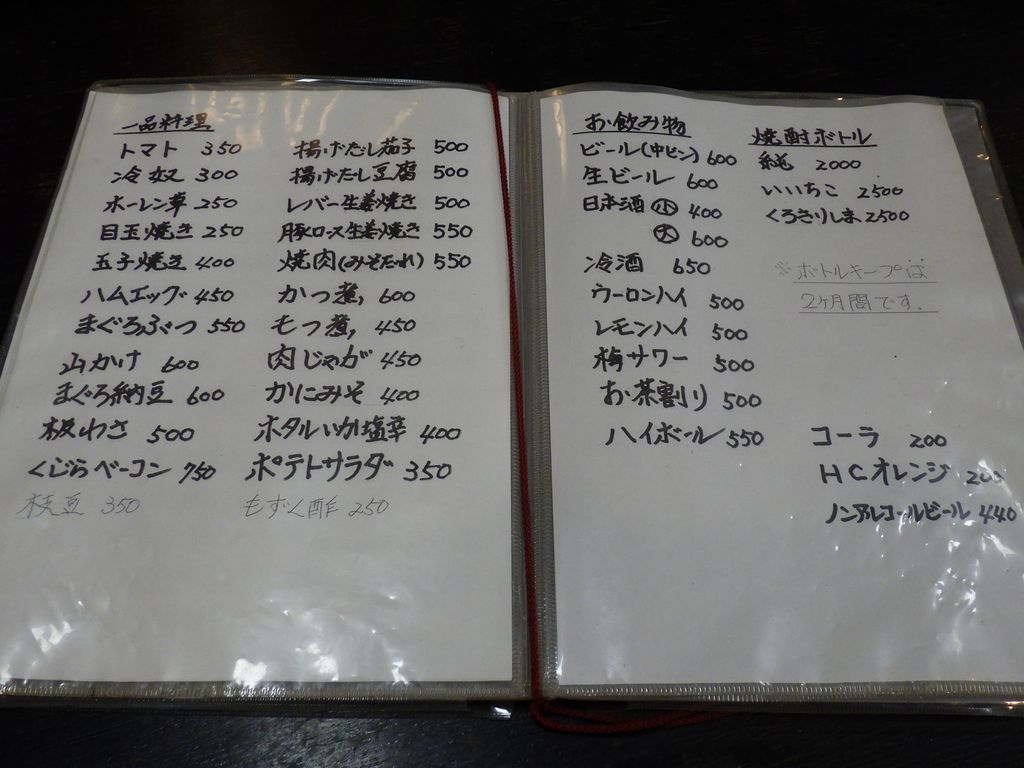 一品料理
トマト 350
冷奴 300
ホーレン草 250
目玉焼き 250
玉子焼き 400
ハムエッグ 450
まぐろぶつ 550
山かけ 600
まぐろ納豆 600
板わさ 500
くじらベーコン 750
枝豆 350
揚げだし茄子 500
揚げだし豆腐 500
レバー生姜焼き 500
豚ロース生姜焼き 550
焼肉(みそだれ) 550
かつ煮, 600
もつ煮, 450
肉じゃが 450
かにみそ 400
ホタルいか塩辛 400
ポテトサラダ 350
もずく酢 250
お飲み物
ビール(中ビン) 600
生ビール 600
日本酒 小 400
大 600
冷酒 650
ウーロンハイ 500
レモンハイ 500
梅サワー 500
お茶割り 500
ハイボール 550
焼酎ボトル
純 2000
いいちこ 2500
くろきりしま 2500
※ボトルキープは
2ヶ月間です.
コーラ 200
HCオレンジ 200
ノンアルコールビール 440